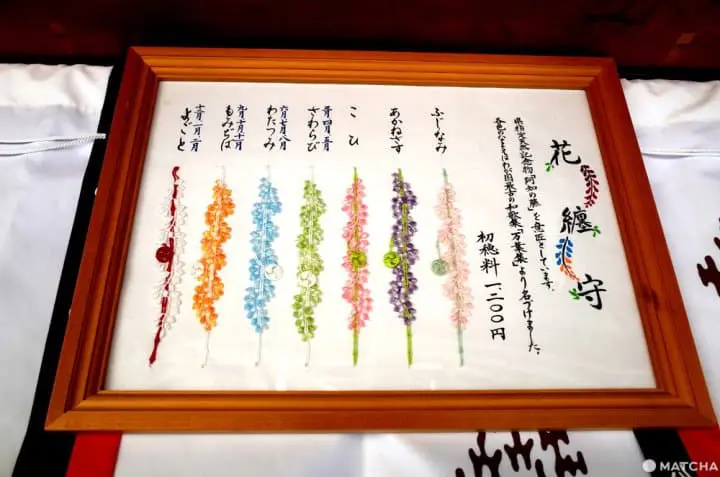 花纏守
県指定天然記念物「阿知の藤」を意匠としています。
各色のなまえはわが国最古の和歌集「万葉集」より名づけました。
初穂料 一、二〇〇円
ふじなみ
あかねさす
こひ
三月 四月 五月
さわらび
六月 七月 八月
わたつみ
九月 十月 十一月
もみぢば
十二月 一月 二月
よごと
MATCHA